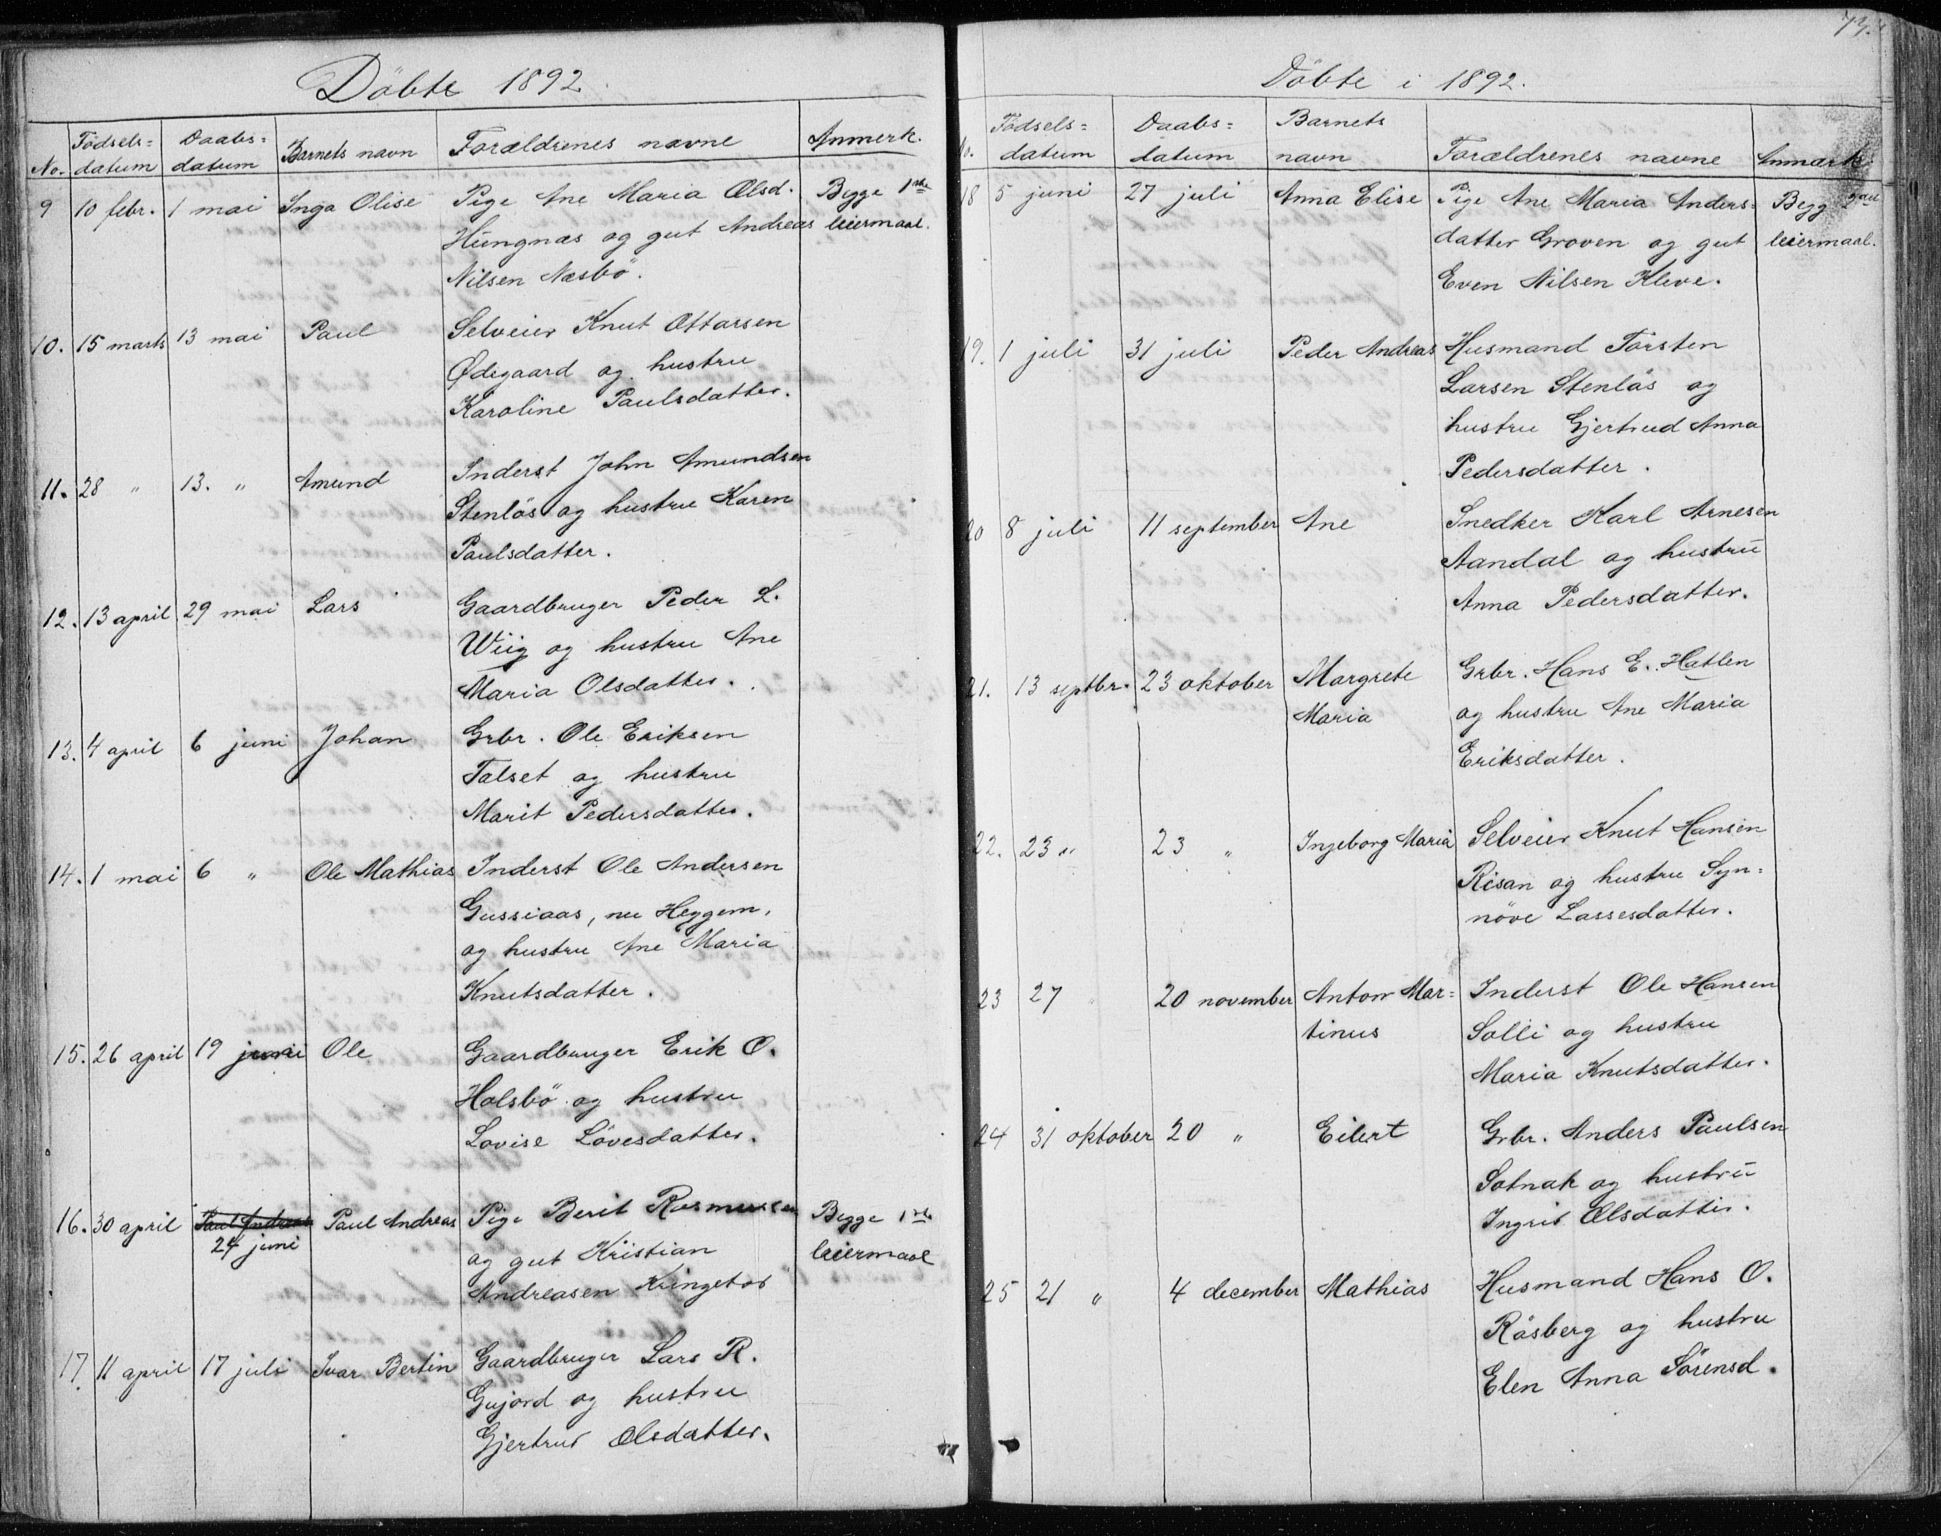 Döbte 1892.
No. Födsels=datum Daabs=datum Barnets navn Forældrenes navne Anmerk.
9 10 febr. 1 mai Inga Olise Pige Ane Maria Olsd. Begge 1ste
Hungnæs og gut Andreas leiermaal.
Nilsen Næsbö.
10. 15 marts 13 mai Paul Selveier Knut Ottarsen
Ødegaard og hustru
Karoline Paulsdatter.
11. 28 " 13. " Amund Inderst John Amundsen
Stenlös og hustru Karen
Paulsdatter.
12. 13 april 29 mai Lars Gaardbruger Peder L.
Wiig og hustru Ane
Maria Olsdatter.
13. 4 april 6 juni Johan Grbr. Ole Eriksen
Talset og hustru
Marit Pedersdatter.
14. 1 mai 6 " Ole Mathias Inderst Ole Andersen
Gussiaas, nu Heggem,
og hustru Ane Maria
Knutsdatter.
15. 26 april 19 juni Ole Gaardbruger Erik O.
Holsbö og hustru
Lovise Lövesdatter.
16. 30 april Paul Andreas Paul Andreas Pige Berit Rasmussen Begge 1ste
24 juni og gut Kristian leiermaal
Andreasen Kringstad
17. 11 april 17 juli Ivar Bertin Gaardbruger Lars R.
Gujord og hustru
Gjertrud Olsdatter.
73.
Döbte i 1892.
No. Födsels=datum Daabs=datum Barnets navn Forældrenes navne Anmærk.
18 5 juni 27 juli Anna Elise Pige Ane Maria Anders= Begg
datter Groven og gut leiermaal.
Even Nilsen Kleve.
19. 1 juli 31 juli Peder Andreas Husmand Torsten
Larsen Stenlös og
hustru Gjertrud Anna
Pedersdatter.
20 8 juli 11 september Ane Snedker Karl Arnesen
Aandal og hustru
Anna Pedersdatter.
21. 13 septbr. 23 oktober Margrete Grbr. Hans E. Hatlen
Maria og hustru Ane Maria
Eriksdatter.
22. 23 " 23 " Ingeborg Maria Selveier Knut Hansen
Risan og hustru Syn=
növe Lassesdatter.
23 27 " 20 november Anton Mar= Inderst Ole Hansen
tinus Solli og hustru
Maria Knutsdatter.
24 31 oktober 20 " Eilert Grbr. Anders Paulsen
Sotnak og hustru
Ingrid Olsdatter.
25 21 " 4 december Mathias Husmand Hans O.
Råsberg og hustru
Elen Anna Sörensd.